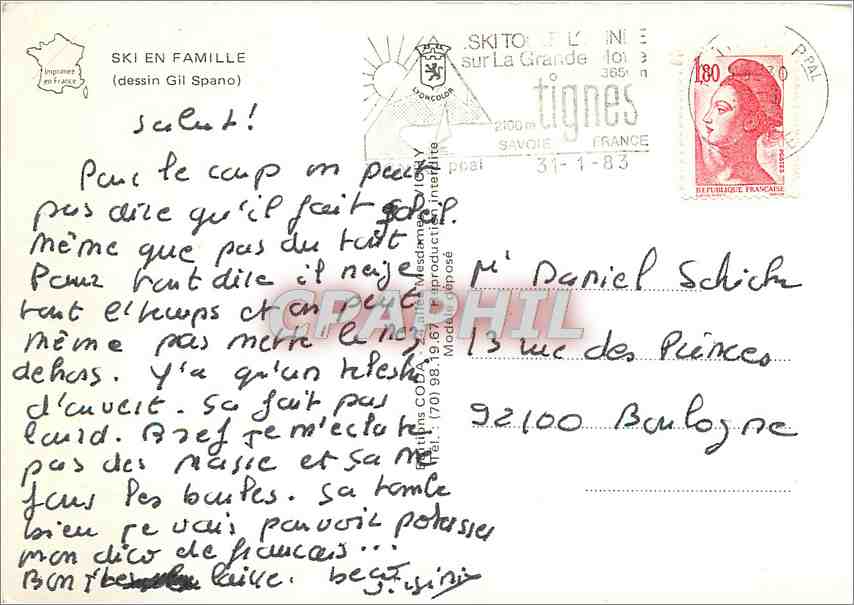 SKI EN FAMILLE
(dessin Gil Spano)
Imprimée
en France
LYONCOLOR
sur La Grande Motte
3656m
tignes
2100m
SAVOIE FRANCE
ppal 31-1-83
PPAL
1,80
POSTES
REPUBLIQUE FRANÇAISE
Salut!
Pour le coup on peut
pas dire qu'il fait soleil.
même que pas du tout
Pour tout dire il neige
tout l'temps et on peut
même pas mettre le nez
dehors. Y'a qu'un téleski
d'ouvert. Sa fait pas
lourd. Bref je m'éclate
pas des masse et sa me
fous les boules. Sa tombe
bien je vais pouvoir potasser
mon dico de français...
Bon j'te laisse.
Editions CODA - 24 allée Mesdames VICHY
Tél. : (70) 98.19.67 - Reproduction interdite
Modèle déposé
CPAPHIL
Mr Daniel Schick
13 rue des Princes
92100 Boulogne